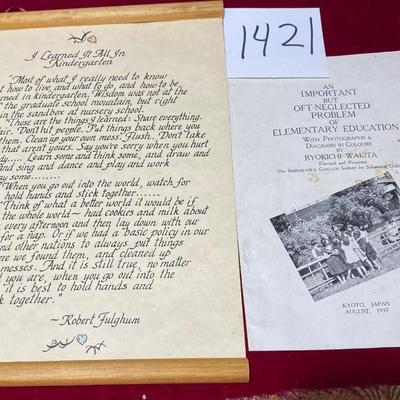 I Learned It All In
Kindergarten
"Most of what I really need to know
t how to live, and what to do, and how to be,
earned in kindergarten. Wisdom was not at the
f the graduate school mountain, but right
in the sandbox at nursery school.
"These are the things I learned: Share everything.
air. Don't hit people. Put things back where you
them. Clean up your own mess. Flush. Don't take
that aren't yours. Say you're sorry when you hurt
dy..... Learn some and think some, and draw and
and sing and dance and play and work
y some.......
"When you go out into the world, watch for
hold hands and stick together.......
Think of what a better world it would be if
the whole world ~ had cookies and milk about
every afternoon and then lay down with our
for a nap. Or if we had a basic policy in our
and other nations to always put things
ere we found them, and cleaned up
messes. And it is still true, no matter
you are, when you go out into the
it is best to hold hands and
k together."
~ Robert Fulghum
1421
AN
IMPORTANT
BUT
OFT-NEGLECTED
PROBLEM
OF
ELEMENTARY EDUCATION
WITH PHOTOGRAPHS &
DIAGRAMS IN COLOURS
BY
RYOKICHI WAKITA
Principal and Proprietor
The SHIRAKAWA GAKUEN Institute for
KYOTO, JAPAN
AUGUST, 1937